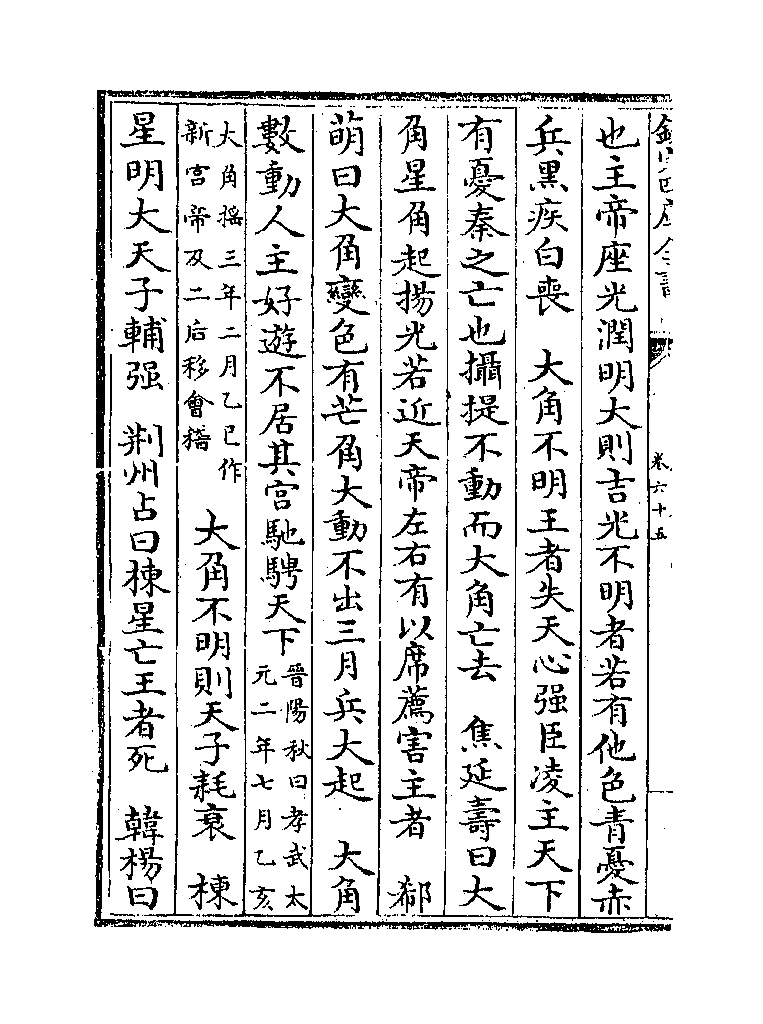 欽定四庫全書
卷六十五
也主帝座光潤明大則吉光不明者若有他色青憂赤
兵黑疾白喪　大角不明王者失天心强臣凌主天下
有憂秦之亡也攝提不動而大角亡去　焦延壽曰大
角星角起揚光若近天帝左右有以席薦害主者　郗
萌曰大角變色有芒角大動不出三月兵大起　大角
數動人主好遊不居其宫馳騁天下晉陽秋曰孝武太
元二年七月乙亥
大角揺三年二月乙巳作
新宫帝及二后移會稽　大角不明則天子耗衰　棟
星明大天子輔强　荆州占曰棟星亡王者死　韓楊曰